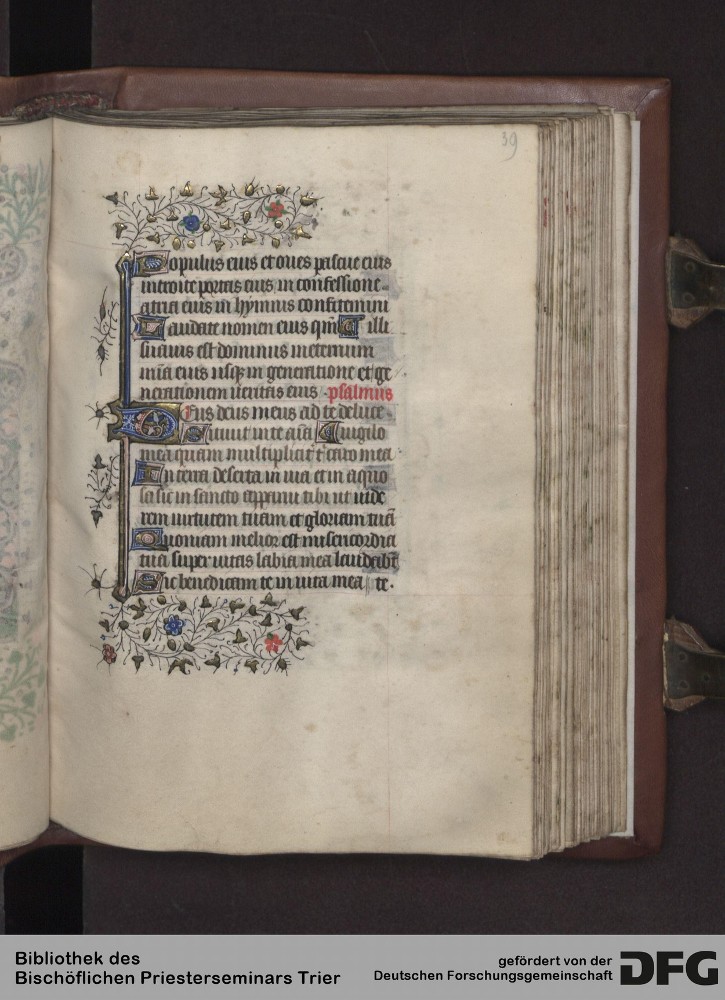 39
Populus eius et oues pascue eius
introite portas eius in confessione
atria eius in hymnis confitemini
Laudate nomen eius qm̄ illi
suauis est dominus ineternum
mīa eius usqʒ in generatione et ge
nerationem ueritas eius psalmus
Deus deus meus ad te de luce
Sitiuit in te aīa uigilo
mea quam multipliciť t' caro mea
In terra deserta in uia et in aquo
sa sic in sancto apparui tibi ut uide
rem uirtutem tuam et gloriam tuā
Quoniam melior est misericordia
tua super uitas labia mea laudabūt
Sic benedicam te in uita mea te
Bibliothek des
Bischöflichen Priesterseminars Trier
gefördert von der
Deutschen Forschungsgemeinschaft
DFG